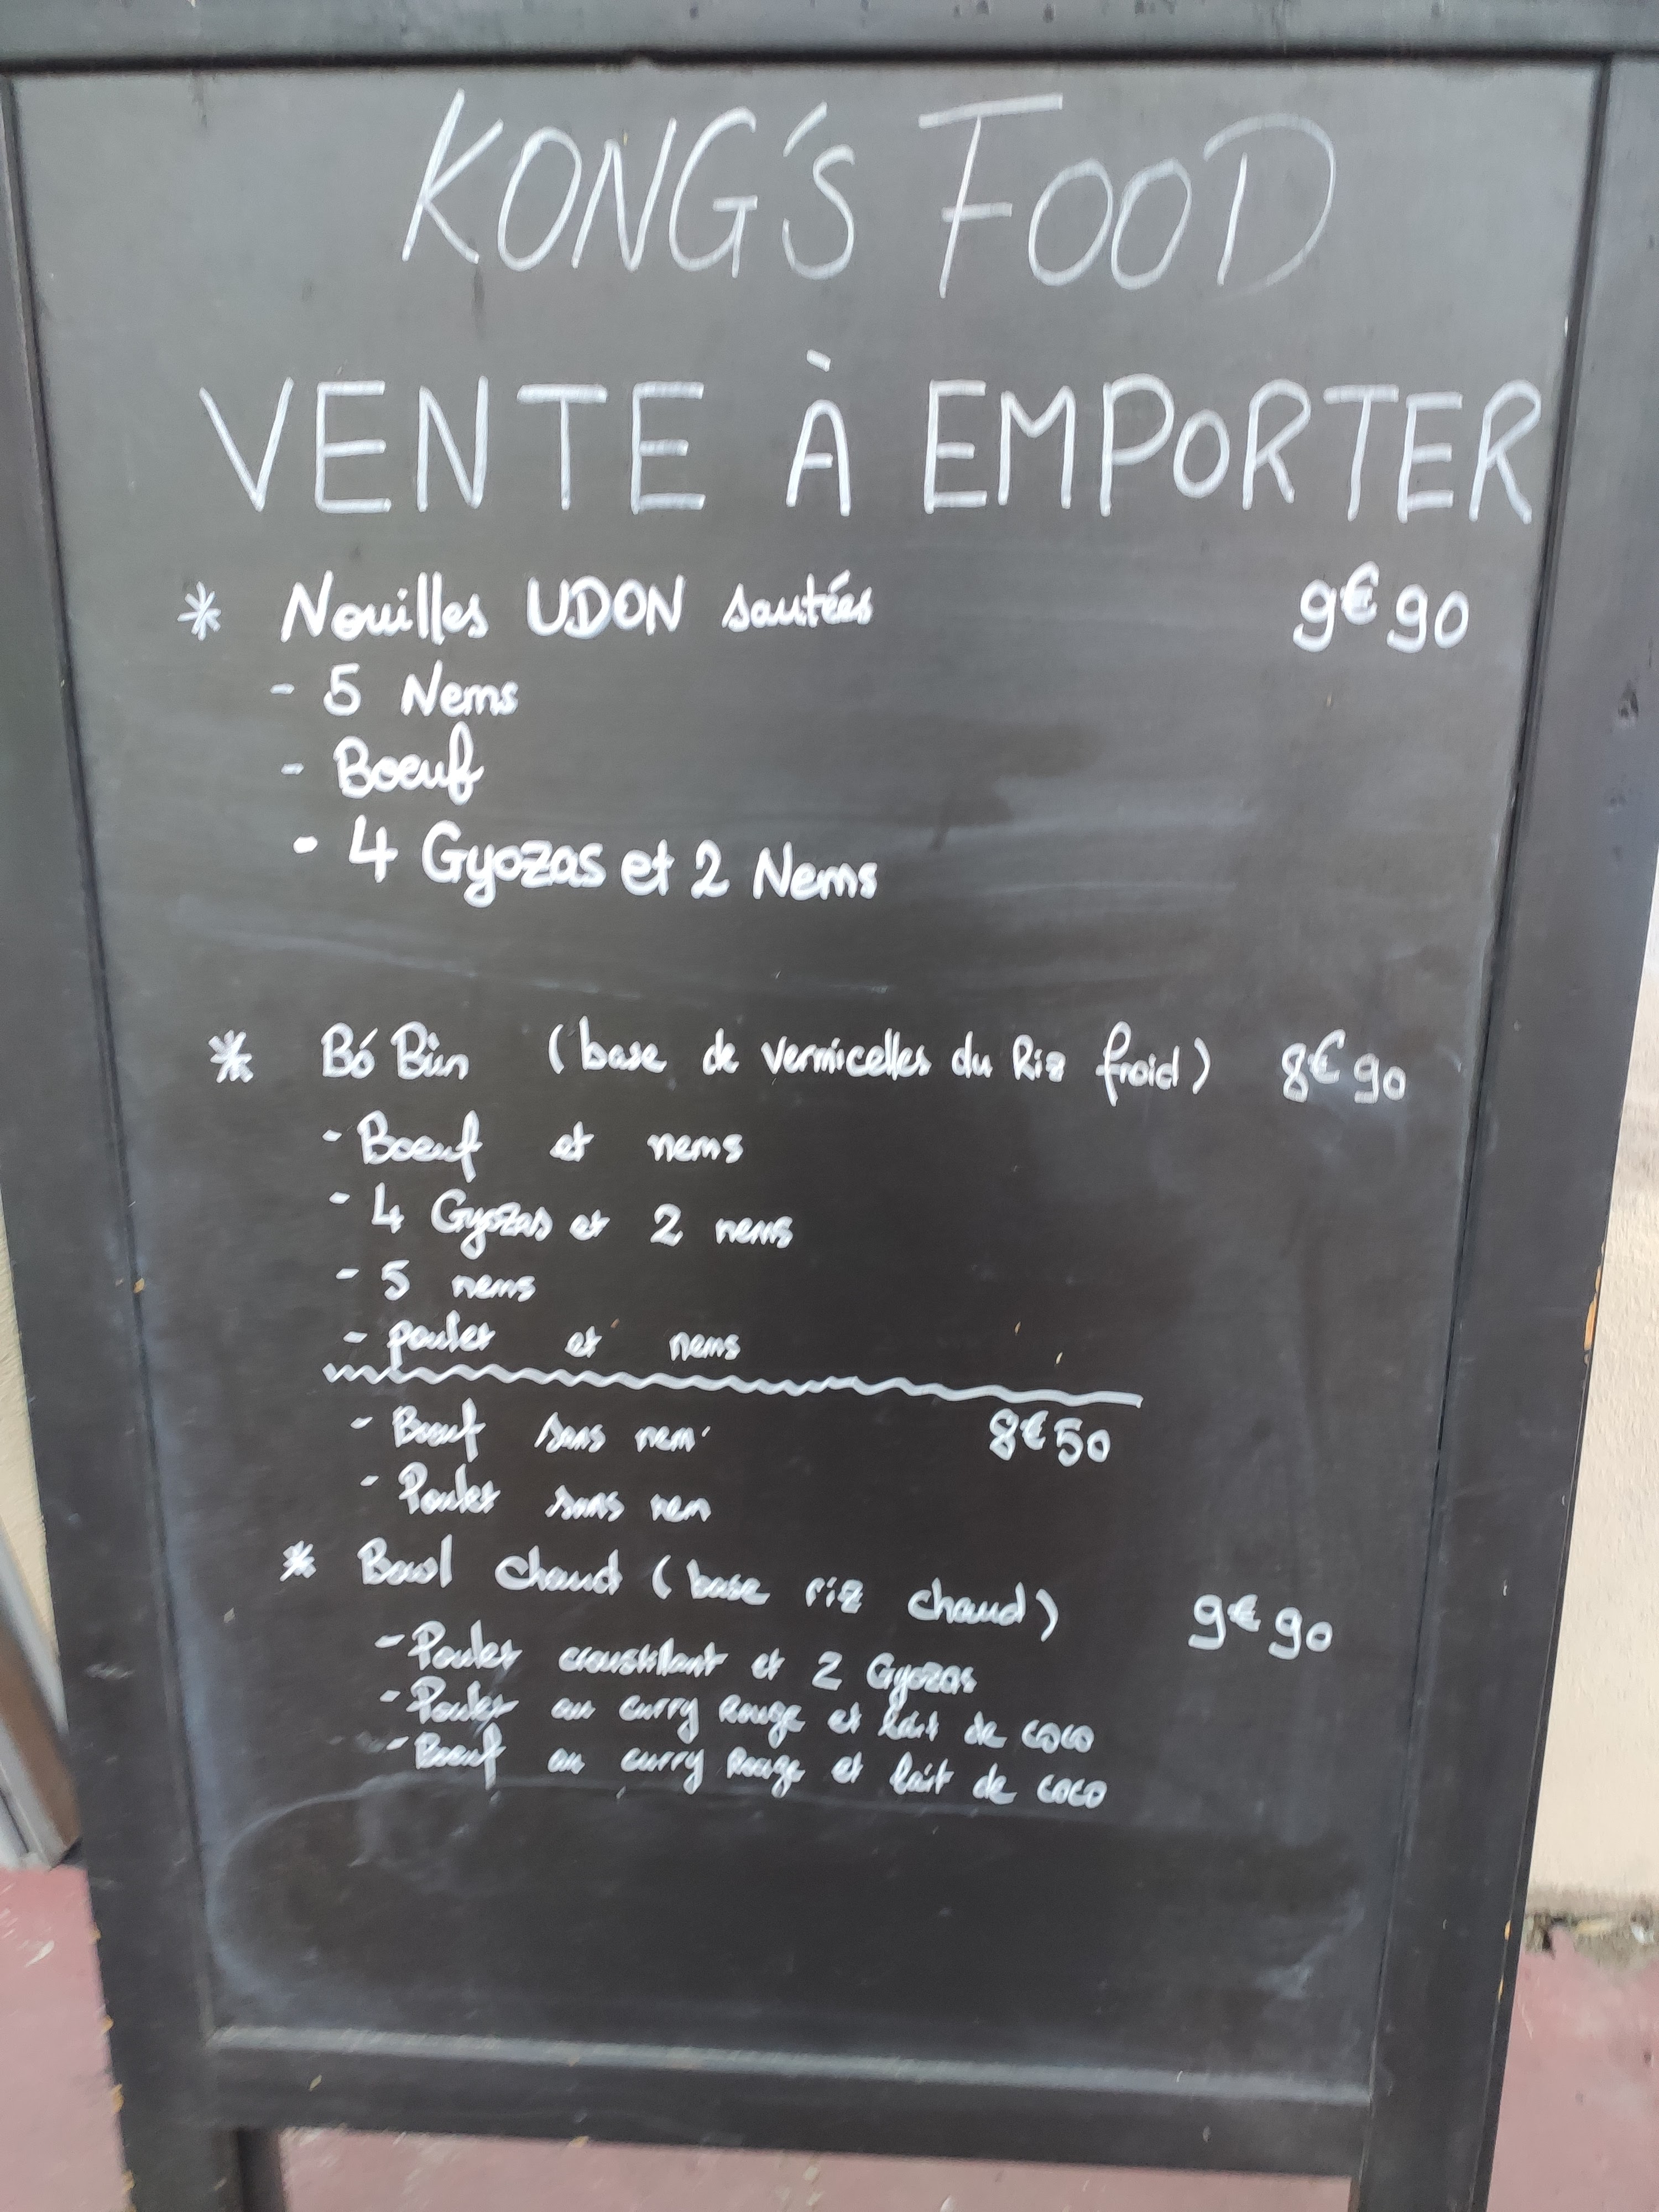 KONG'S FOOD
VENTE À EMPORTER
* Nouilles UDON sautées 9€90
- 5 Nems
- Boeuf
- 4 Gyozas et 2 Nems
* Bó Bùn (base de vermicelles du Riz froid) 8€90
- Boeuf et nems
- 4 Gyozas et 2 nems
- 5 nems
- poulet et nems
- Boeuf sans nem 8€50
- Poulet sans nem
* Bowl chaud (base riz chaud) 9€90
- Poulet croustillant et 2 Gyozas
- Poulet au curry Rouge et lait de coco
- Boeuf au curry Rouge et lait de coco